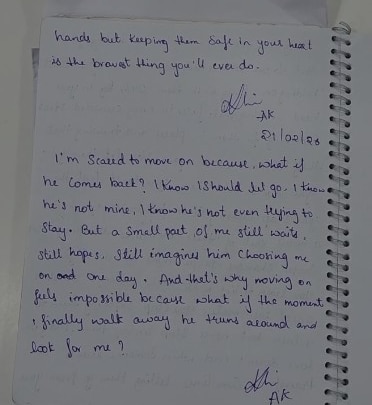 hands but keeping them safe in your heart
is the bravest thing you'll ever do.
AK
21/02/26
I'm scared to move on because, what if
he comes back? I know I should let go. I know
he's not mine, I know he's not even trying to
stay. But a small part of me still waits,
still hopes, still imagines him choosing me
on one day. And that's why moving on
feels impossible because what if the moment
I finally walk away he truns around and
look for me?
AK